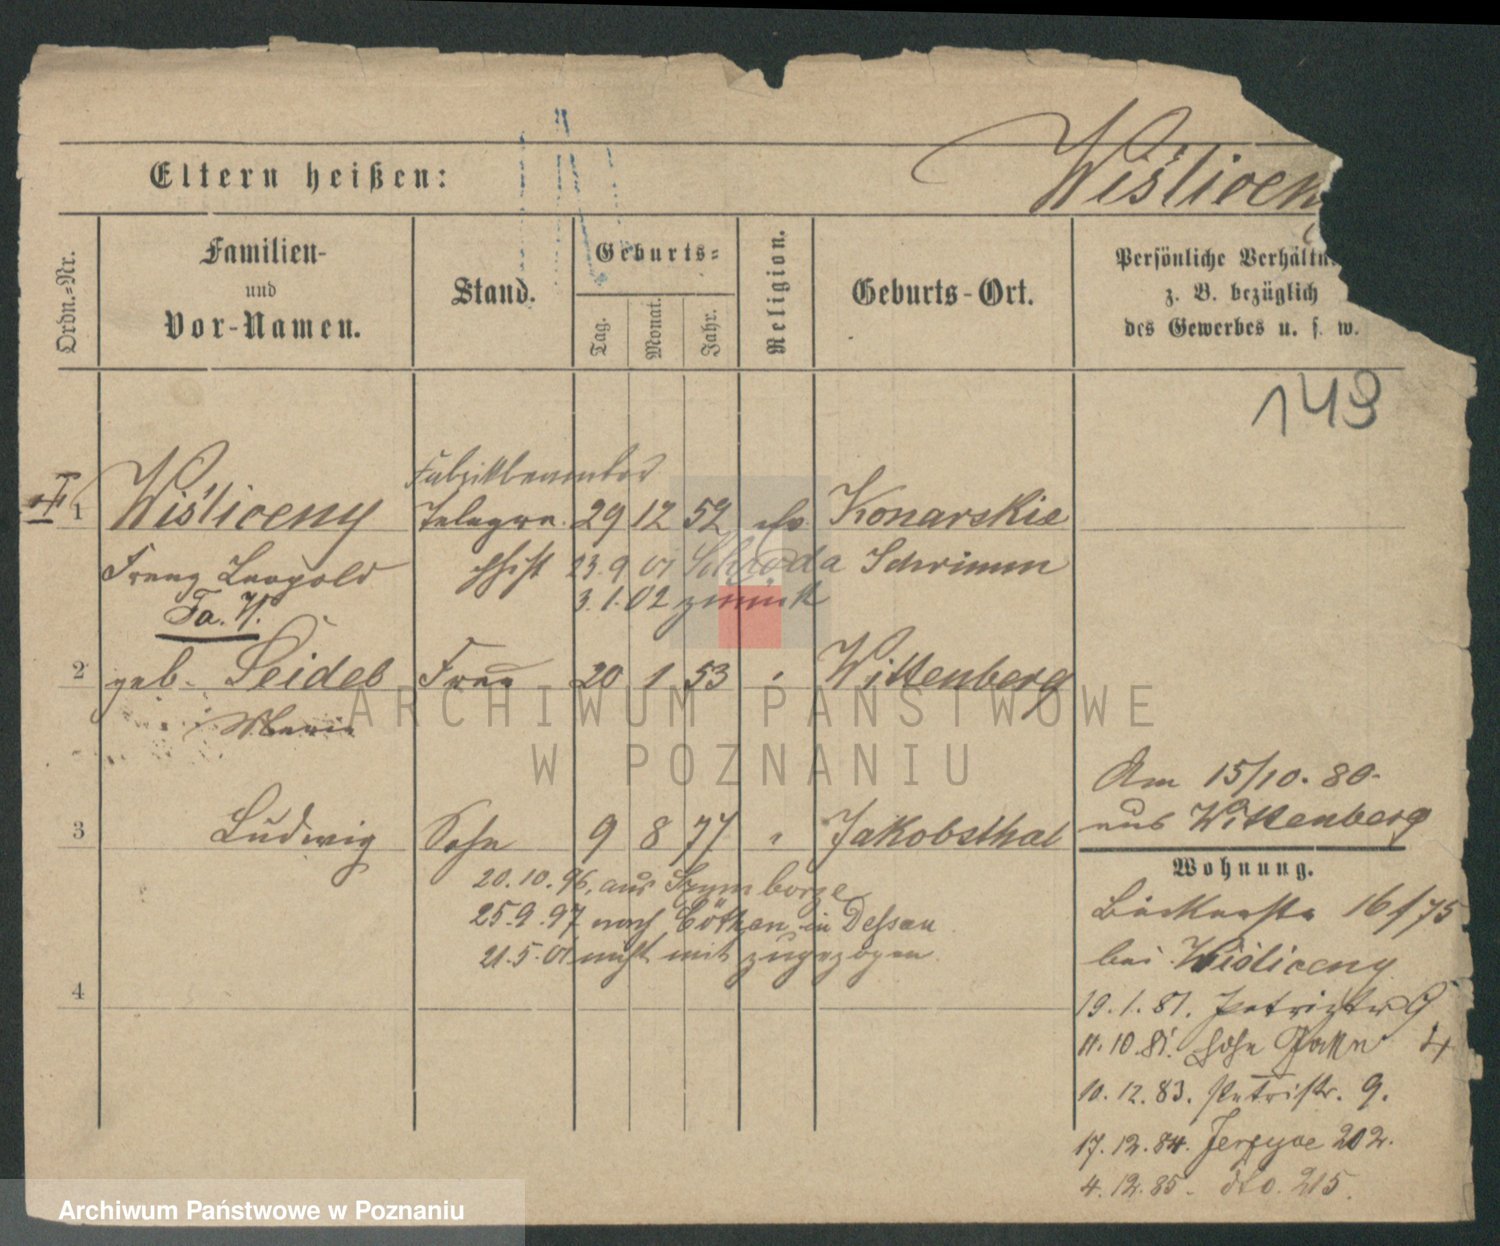 Wiśliceny
Eltern heißen:
Ordn.-Nr.
Familien-
und
Vor-Namen.
Stand.
Geburts-
Tag.
Monat.
Jahr.
Religion.
Geburts-Ort.
Persönliche Verhältn
z. B. bezüglich
des Gewerbes u. s. w.
149
1 Wiśliceny 29 12 52 ev. Konarskie
Franz Leopold 23.9 01 Schroda Schrimm
Fa. 3.1.02 zurück
2 geb. Seidel Frau 20 1 53 Wittenberg
Marie
Am 15/10. 80.
aus Wittenberg
3 Ludwig Sohn 9 8 77 " Jakobsthal
20.10.96. aus Szymborze
25.9.97 nach Cöthen in Dessau
21.5.01 nicht mit zugezogen
4
Wohnung.
Bäckerstr 16/75
bei Wiśliceny
19.1.81. Petristr 9
11.10.81. 4
10.12.83. Petristr. 9.
17.12.84. Jerzyce 202.
4.12.85. dto. 215.
ARCHIWUM PAŃSTWOWE
W POZNANIU
Archiwum Państwowe w Poznaniu